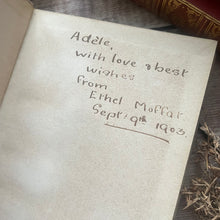 Adèle,
with love & best
wishes
from
Ethel Moffat
Sept. 9th 1903.